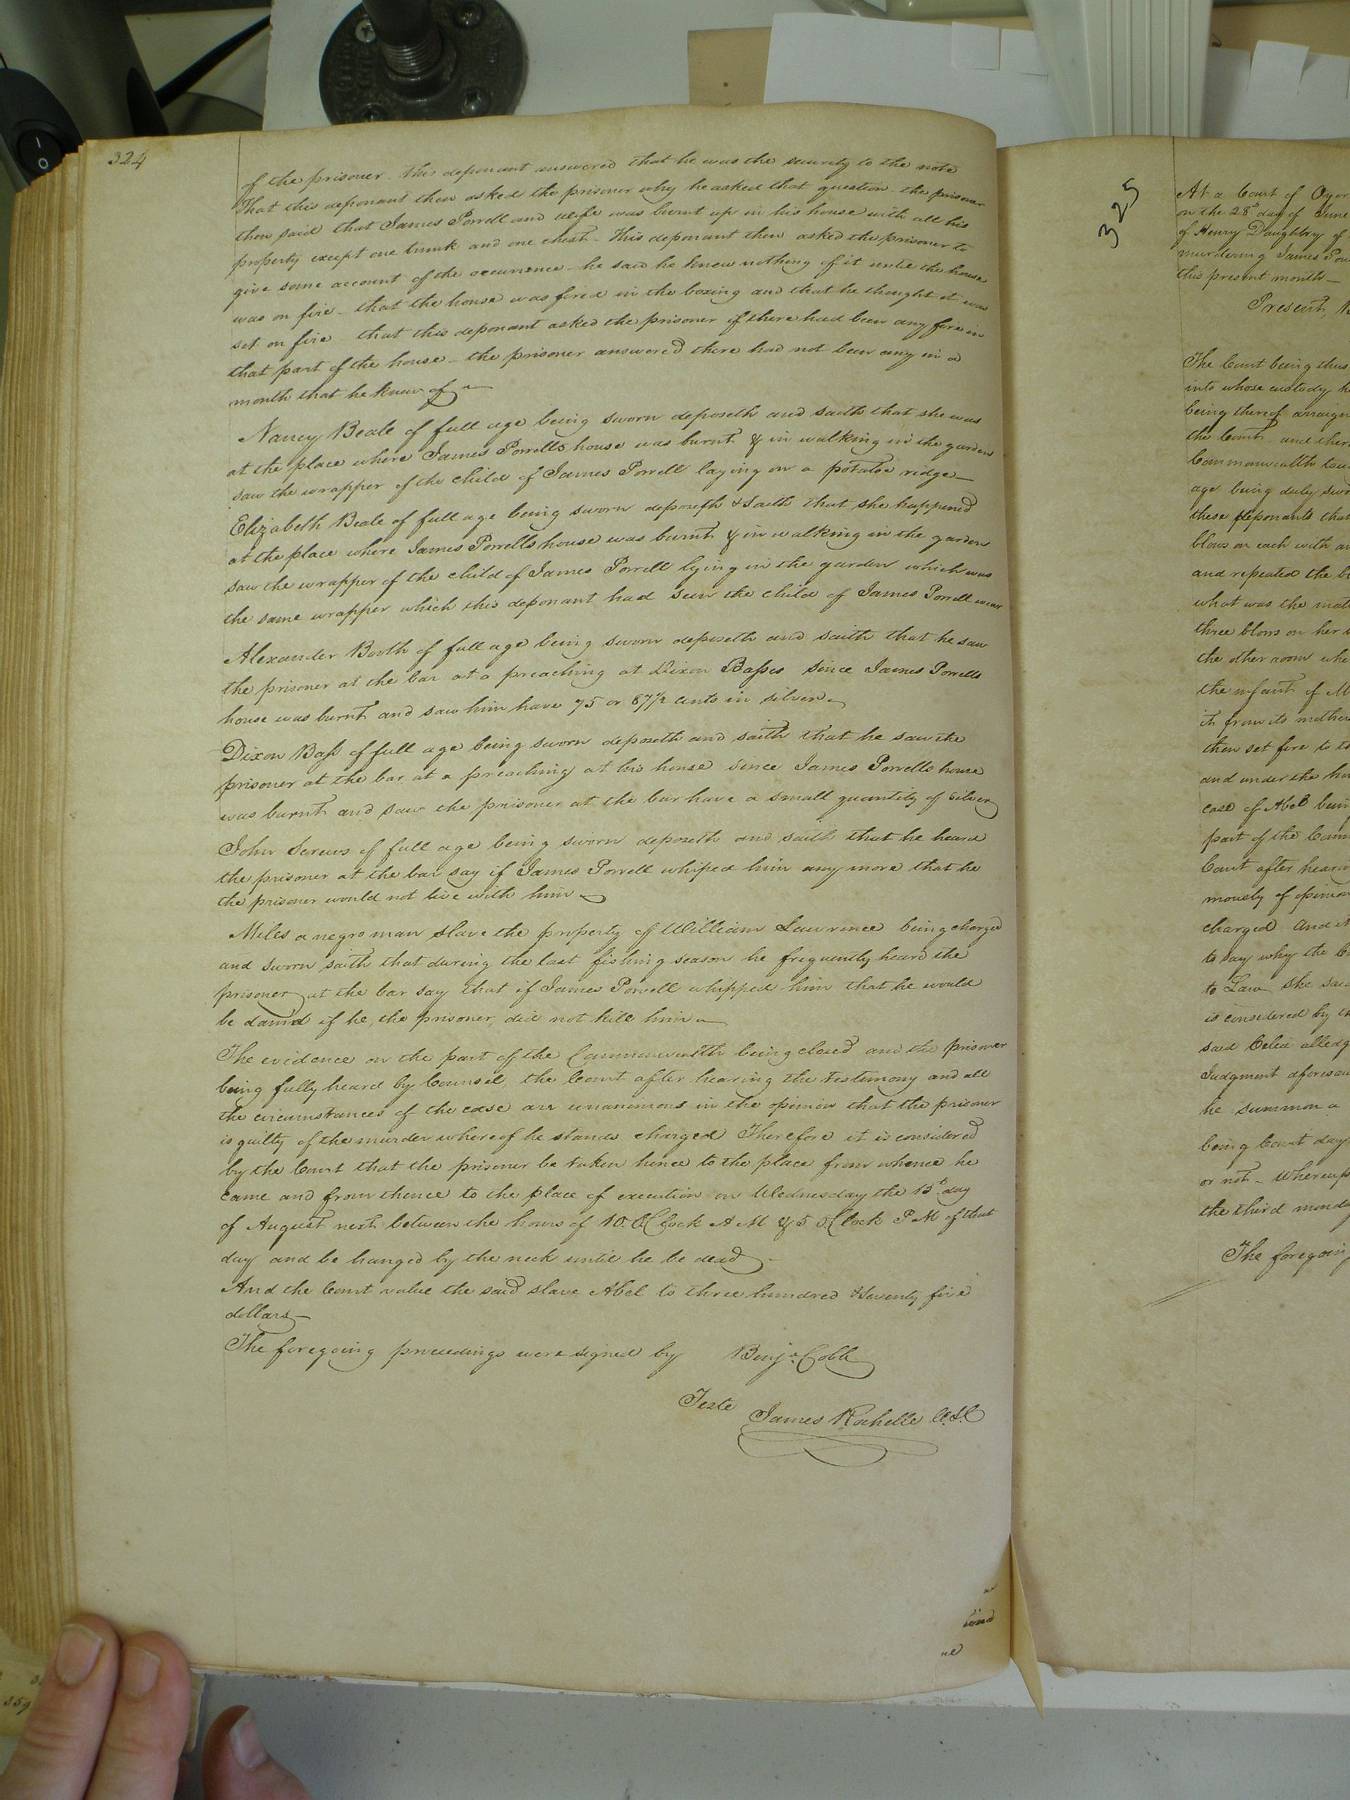 324
of the prisoner. This deponant answered that he was the security to the note
That this deponant then asked the prisoner why he asked that question. the prisoner
then said that James Porrell and wife was burnt up in his house with all his
property except one trunk and one chest – This deponant then asked the prisoner to
give some account of the occurrence – he said he knew nothing of it until the house
was on fire – that the house was fired in the boxing and that he thought it was
set on fire that this deponant asked the prisoner if there had been any fire in
that part of the house – the prisoner answered there had not been any in a
month that he knew of –
Nancy Beale of full age being sworn deposeth and saith that she was
at the place where James Porrells house was burnt & in walking in the garden
saw the wrapper of the child of James Porrell laying on a potatoe ridge –
Elizabeth Beale of full age being sworn deposeth & saith that she happened
at the place where James Porrells house was burnt & in walking in the garden
saw the wrapper of the child of James Porrell lying in the garden which was
the same wrapper which this deponant had seen the child of James Porrell wear
Alexander Booth of full age being sworn deposeth and saith that he saw
the prisoner at the bar at a preaching at Dixon Basses since James Porrells
house was burnt and saw him have 75 or 87½ cents in silver –
Dixon Bass of full age being sworn deposeth and saith that he saw the
prisoner at the bar at a preaching at his house since James Porrells house
was burnt and saw the prisoner at the bar have a small quantity of silver
John Screws of full age being sworn deposeth and saith that he heard
the prisoner at the bar say if James Porrell whiped him any more that he
the prisoner would not live with him –
Miles a negro man slave the property of William Lawrence being charged
and sworn saith that during the last fishing season he frequently heard the
prisoner at the bar say that if James Porrell whipped him that he would
be damnd if he, the prisoner, did not kill him –
The evidence on the part of the Commonwealth being closed and the prisoner
being fully heard by Counsel the Court after hearing the testimony and all
the circumstances of the case are unanimous in the opinion that the prisoner
is guilty of the murder whereof he stands charged Therefore it is considered
by the Court that the prisoner be taken hence to the place from whence he
came and from thence to the place of execution on Wednesday the 15th day
of August next between the hours of 10 OClock A M & 5 OClock P M of that
day and be hanged by the neck until he be dead –
And the Court value the said slave Abel to three hundred & seventy five
dollars –
The foregoing proceedings were signed by Benja Cobb
Teste James Rochelle C.S.C
325
At a Court of Oyer
on the 28th day of June
of Henry Daughtry of
murdering James Por
this present month –
Present,
The Court being thus
into whose custody
being thereof arraign
the Court and ther
Commonwealth
age being duly swo
these deponants that
blows on each with an
and repeated the bl
what was the mat
three blows on her
the other room whe
the infant of M
it from its mother
then set fire to
and under the
case of Abel bein
part of the Com
Court after hearin
mously of opinion
charged And
to say why the
to Law She sai
is considered by th
said Celia alledg
Judgment aforesai
he summon a
being Court day
or not – Whereup
the third monday
The foregoing